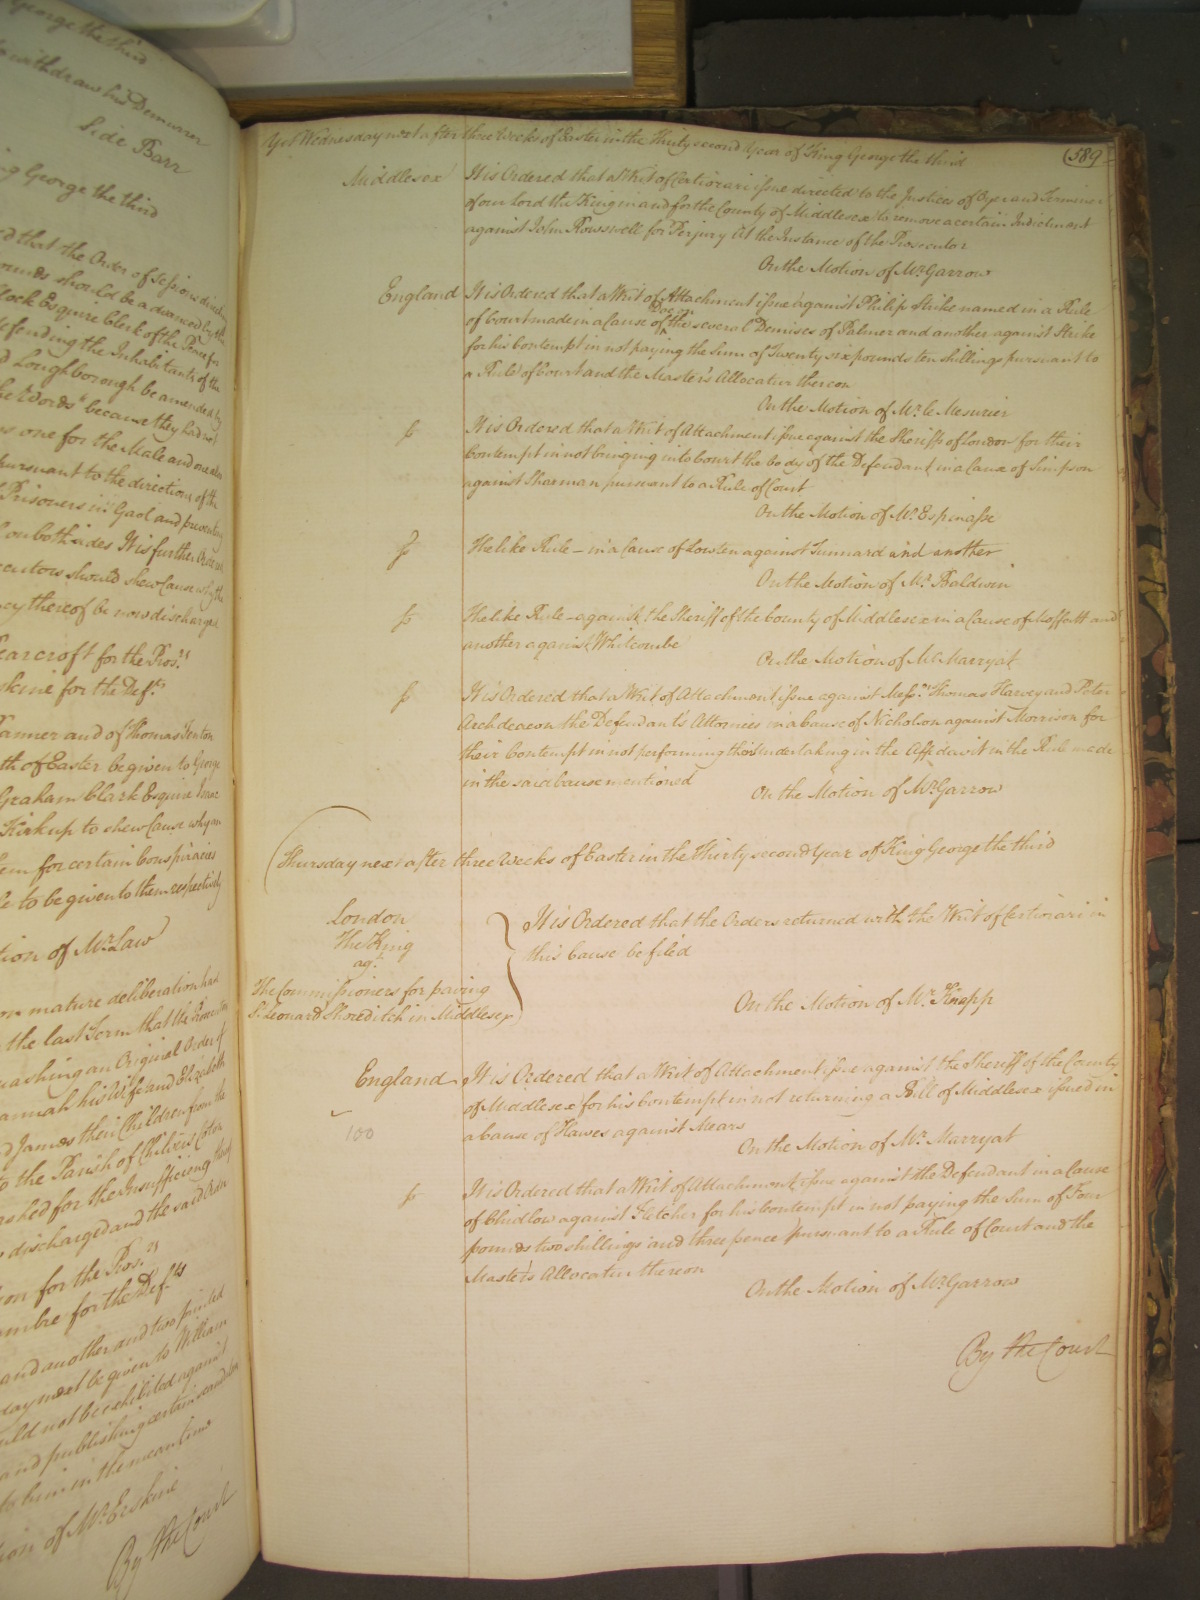 George the third
to withdraw his Demurrer
Side Barr
King George the third
that the Order of Sessions
should be advanced by the
Esquire Clerk of the Peace for
defending the Inhabitants of the
Loughborough be amended by
the Words "because they had not
one for the Male and one
pursuant to the directions of the
Prisoners in Gaol and
on both sides It is further
should shew Cause why the
thereof be now discharged
Bearcroft for the Pros.rs
Erskine for the Def.ts
and of Thomas Fenton
of Easter be given to George
Graham Clark Esquire
Kirkup to shew Cause why an
for certain Conspiracies
to be given to them respectively
Motion of Mr. Law
on mature deliberation
the last Term that the
quashing an Original Order of
Hannah his Wife and Elizabeth
and James their Children from the
to the Parish of
quashed for the Insufficiency
discharged and the said Order
for the Pros.rs
for the Def.ts
and another and two printed
day next be given to William
should not be exhibited against
and publishing certain
to him in the mean time
Motion of Mr. Erskine
By the Court
Yet Wednesday next after three Weeks of Easter in the Thirty second Year of King George the third
589
Middlesex It is Ordered that a Writ of Certiorari issue directed to the Justices of Oyer and Terminer
of our Lord the King in and for the County of Middlesex to remove a certain Indictment
against John Rowswell for Perjury At the Instance of the Prosecutor
On the Motion of Mr. Garrow
England It is Ordered that a Writ of Attachment issue against Philip Strike named in a Rule
of Court made in a Cause of Doe on the several Demises of Palmer and another against Strike
for his Contempt in not paying the Sum of Twenty six pounds ten shillings pursuant to
a Rule of Court and the Master's Allocatur thereon
On the Motion of Mr. le Mesurier
It is Ordered that a Writ of Attachment issue against the Sheriffs of London for their
Contempt in not bringing into Court the body of the Defendant in a Cause of Simpson
against Sharman pursuant to a Rule of Court
On the Motion of Mr. Espinasse
The like Rule – in a Cause of Lowten against Tunnard and another
On the Motion of Mr. Baldwin
The like Rule – against the Sheriff of the County of Middlesex in a Cause of Moffatt and
another against Whitcombe
On the Motion of Mr. Marryat
It is Ordered that a Writ of Attachment issue against Mess.rs Thomas Harvey and Peter
Archdeacon the Defendant's Attornies in a Cause of Nicholson against Morrison for
their Contempt in not performing their Undertaking in the Affidavit in the Rule made
in the said Cause mentioned
On the Motion of Mr. Garrow
Thursday next after three Weeks of Easter in the Thirty second Year of King George the third
London
The King
ag.t
The Commissioners for paving
St. Leonard Shoreditch in Middlesex
It is Ordered that the Orders returned with the Writ of Certiorari in
this Cause be filed
On the Motion of Mr. Knapp
England It is Ordered that a Writ of Attachment issue against the Sheriff of the County
of Middlesex for his Contempt in not returning a Bill of Middlesex issued in
100
a Cause of Hawes against Mears
On the Motion of Mr. Marryat
It is Ordered that a Writ of Attachment issue against the Defendant in a Cause
of Chidlow against Fletcher for his Contempt in not paying the Sum of Four
pounds two shillings and three pence pursuant to a Rule of Court and the
Master's Allocatur thereon
On the Motion of Mr. Garrow
By the Court